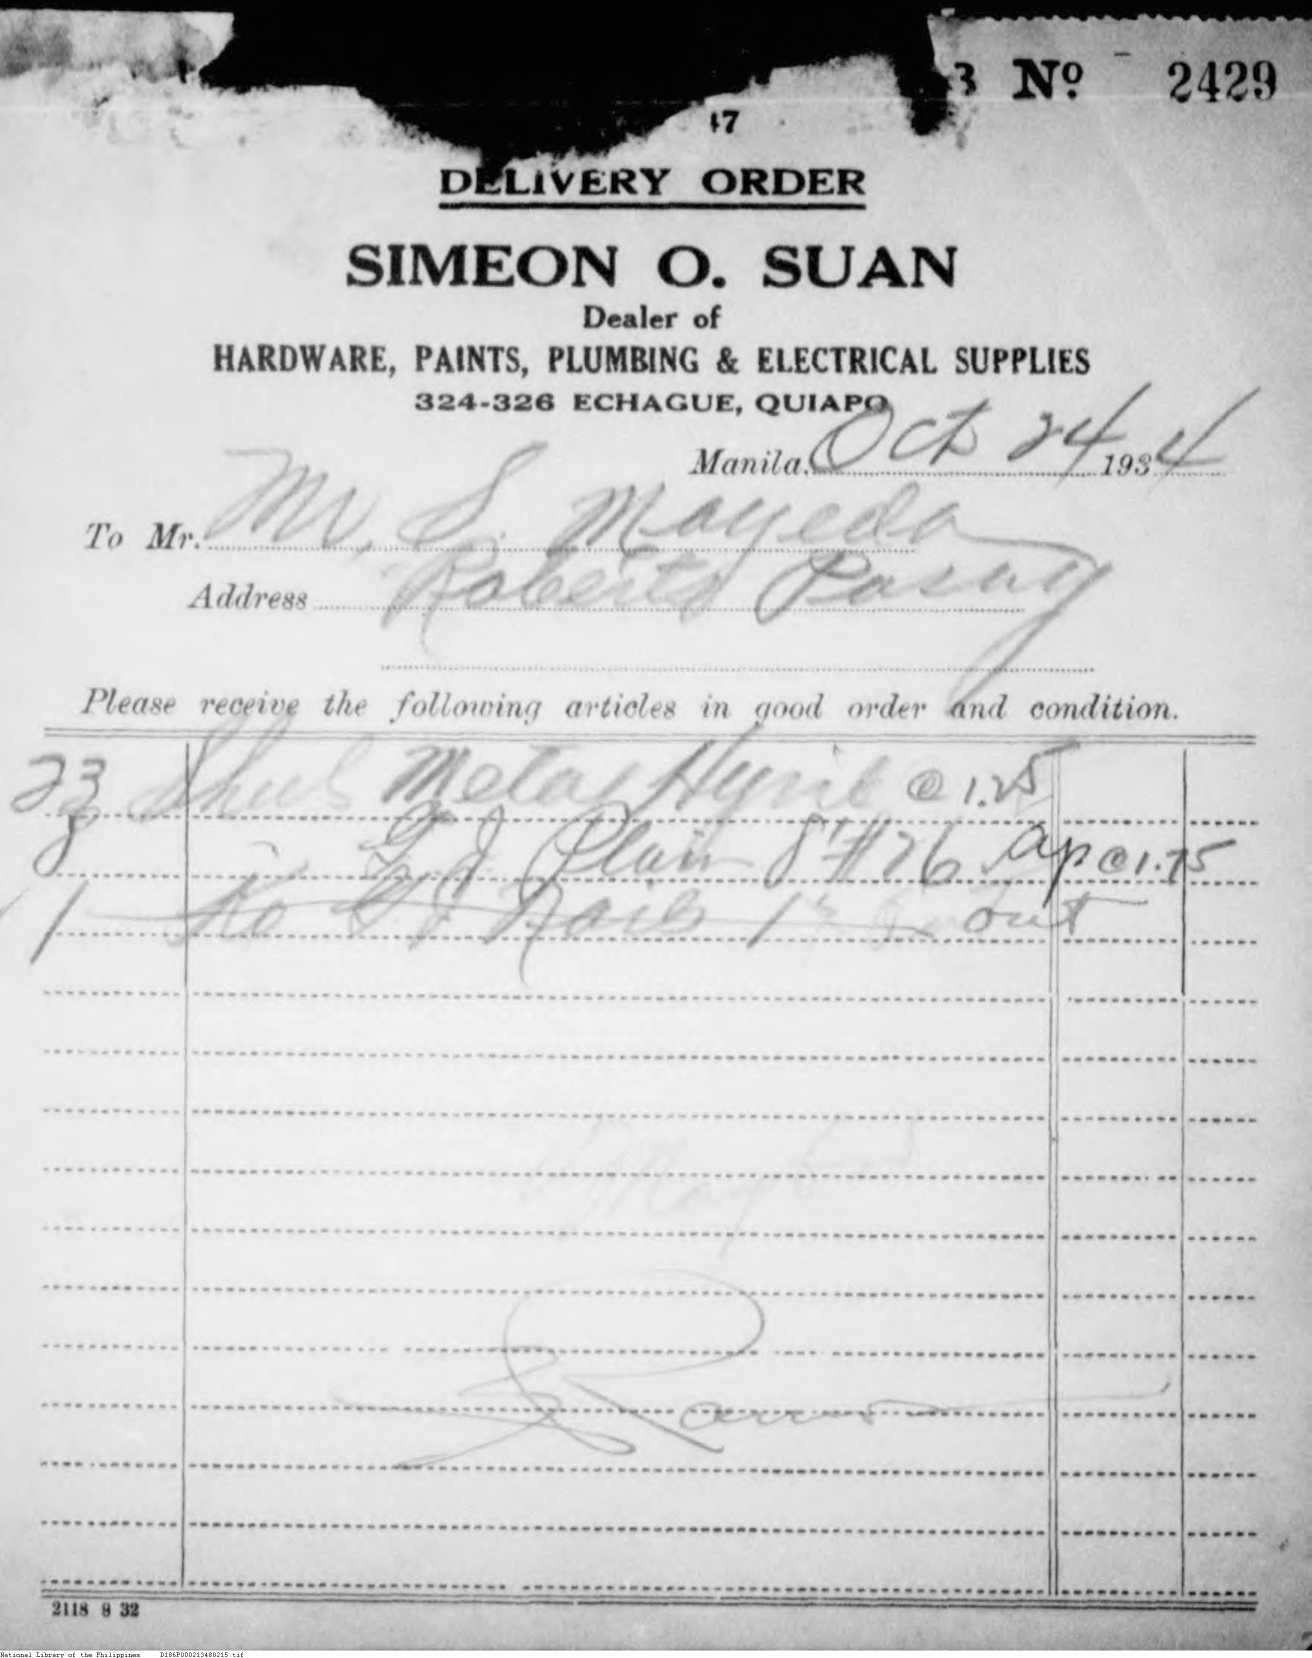 3 Nº 2429
47
DELIVERY ORDER
SIMEON O. SUAN
Dealer of
HARDWARE, PAINTS, PLUMBING & ELECTRICAL SUPPLIES
324-326 ECHAGUE, QUIAPO
Manila, Oct 24 1934
To Mr. Mr. S. Mayeda
Address Roberts Pasay
Please receive the following articles in good order and condition.
23 Metal @ 1.25
8 G I Plain 8' #26 Ap @ 1.75
1 Ko G I Nails 1" out
2118 9 32
National Library of the Philippines D186P000213480215.tif